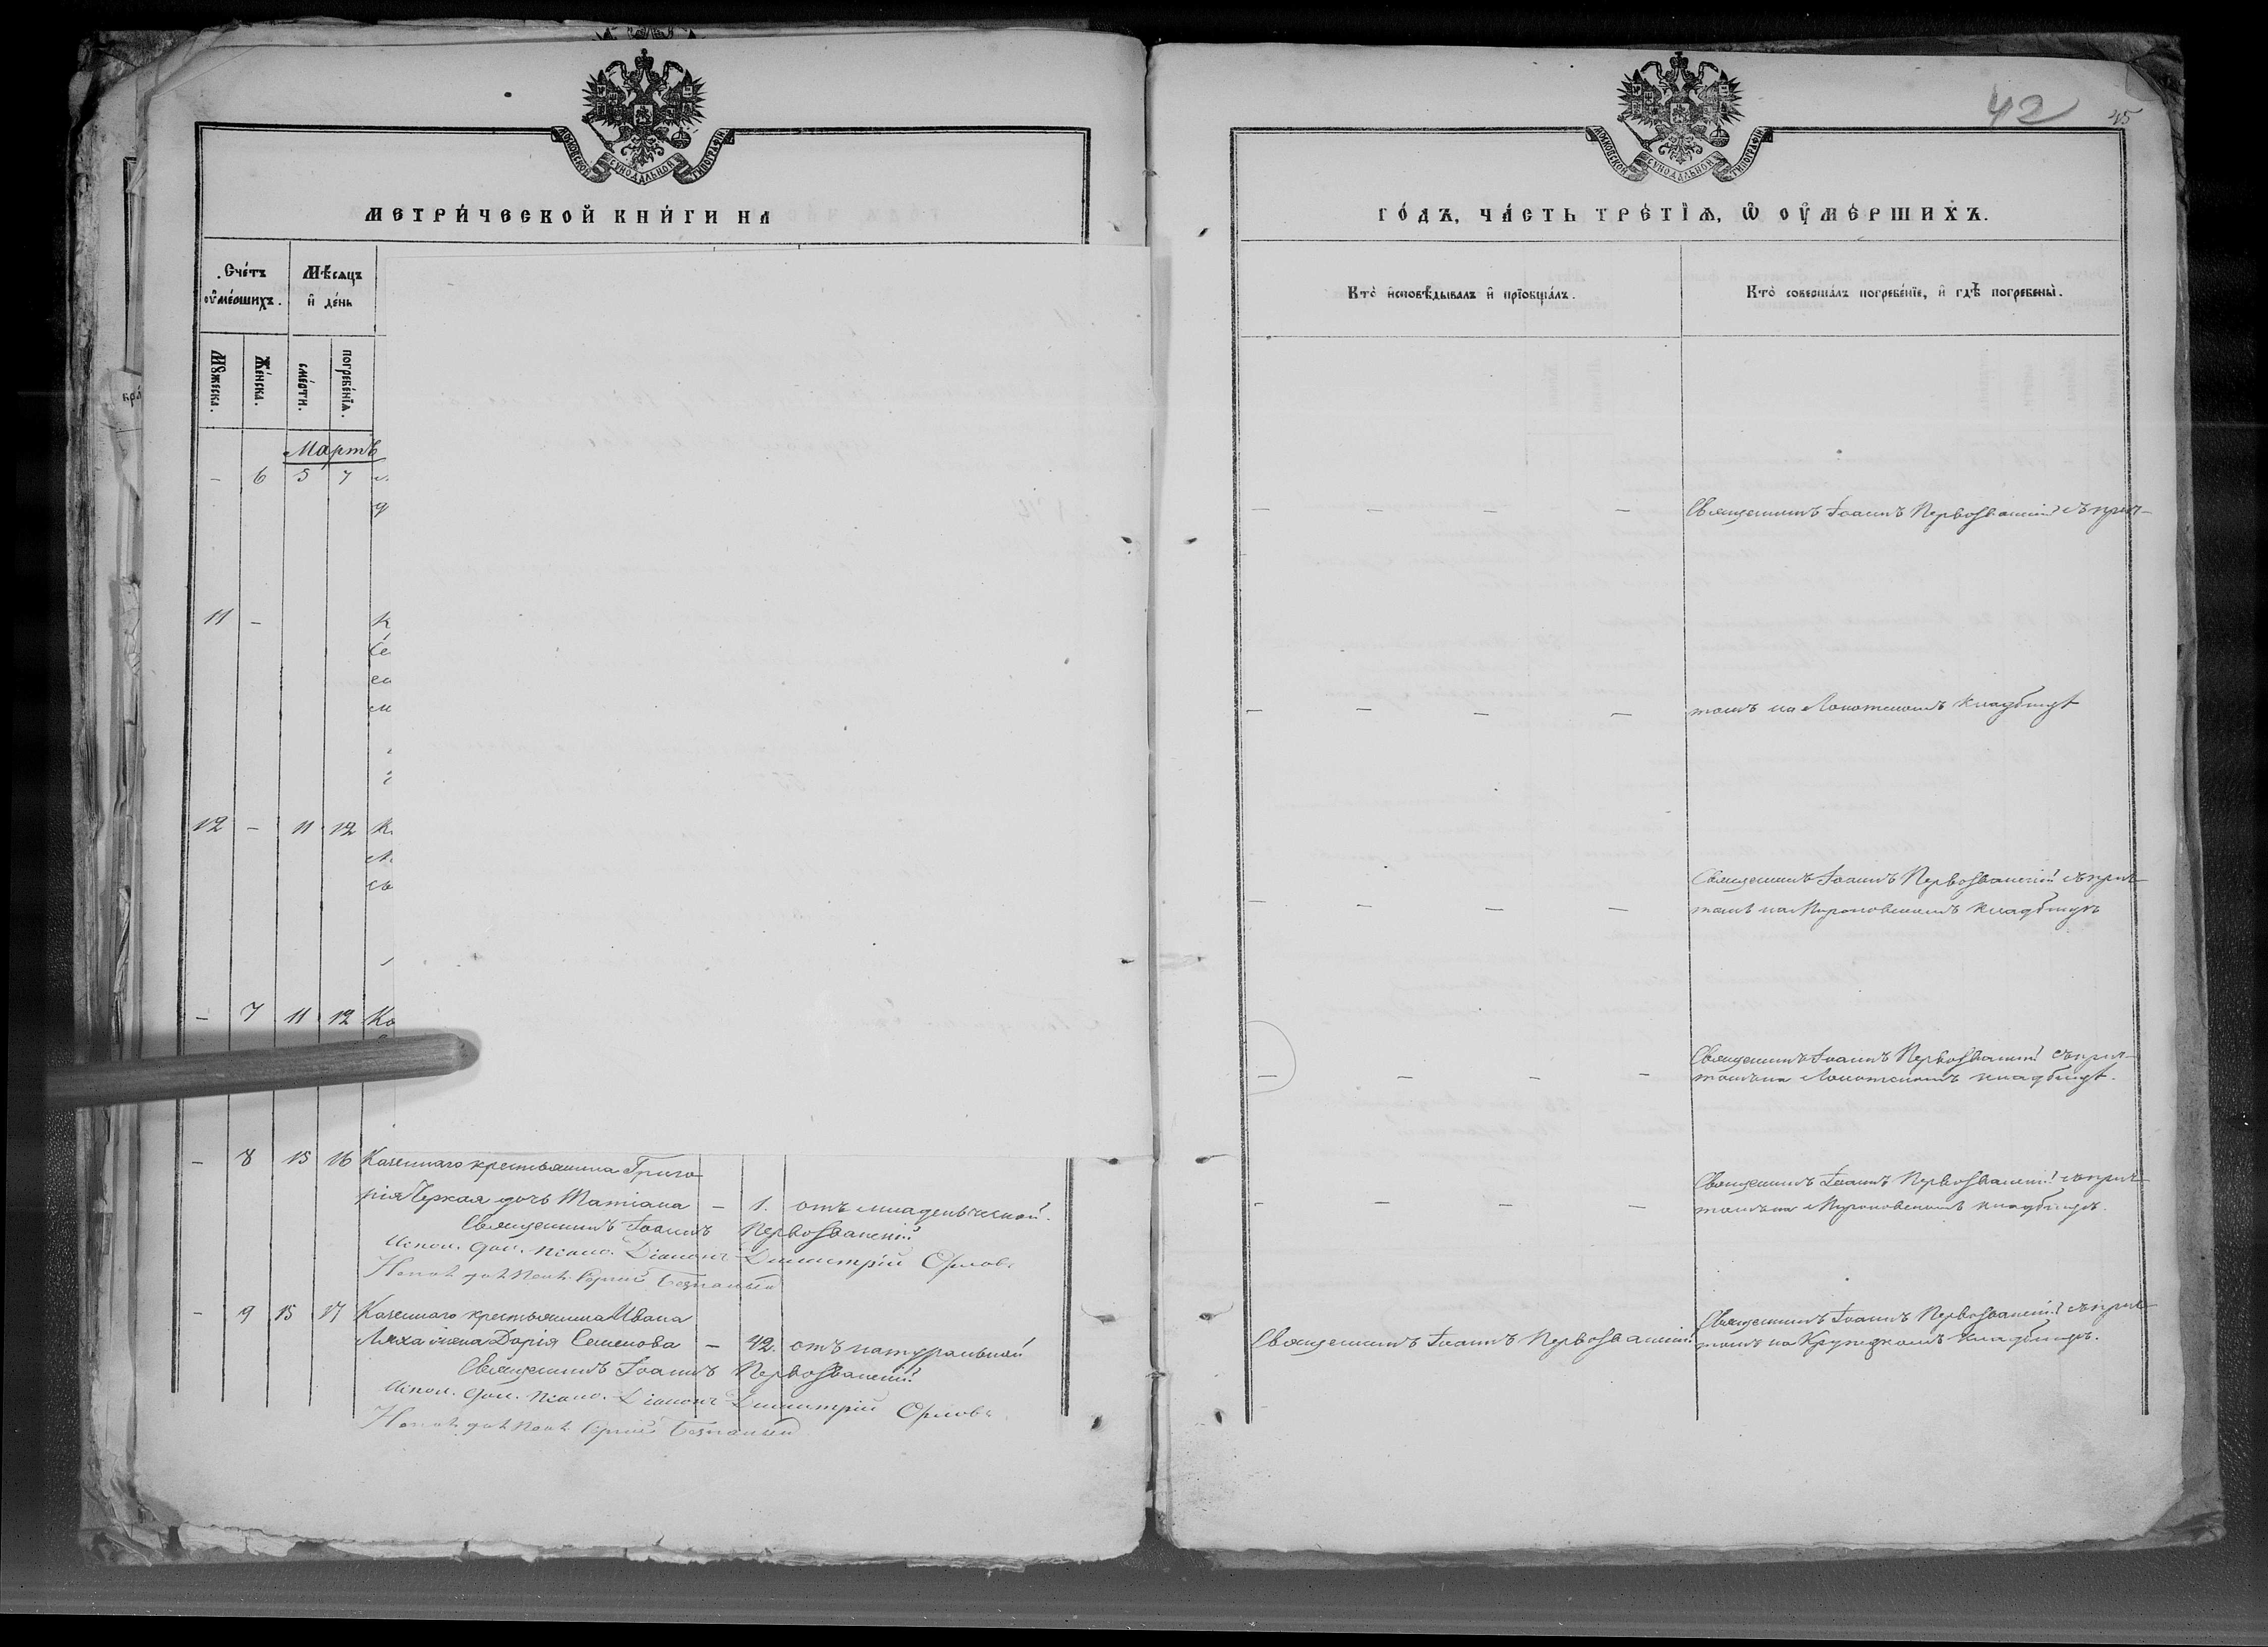 МОСКОВСКОЙ СѴНОДАЛЬНОЙ ТИПОГРАФІИ
МЕТРИ́ЧЕСКОЙ КНИ́ГИ НА
Сче́тъ ᲂу҆ме́ршихъ.
Мѣ́сяцъ и҆ де́нь
Мꙋ́жеска.
Же́нска.
сме́рти.
погребе́нїѧ.
Мартъ
- 6 5 7
11 -
Се
12 - 11 12
- 7 11 12 Ка
- 8 15 16 Казеннаго крестьянина Григо
рія Черкая дочь Татіана - 1. отъ младенческой.
Священникъ Іоаннъ Первозванскій
Испол. дол. псалом. Діаконъ Димитрій Орловъ
- 9 15 17 Казеннаго крестьянина Ивана
Ляха жена Дарія Семенова - 42. отъ натуральной
Священникъ Іоаннъ Первозванскій
Испол. дол. псалом. Діаконъ Димитрій Орловъ
42
45
МОСКОВСКОЙ СѴНОДАЛЬНОЙ ТИПОГРАФІИ
ГО́ДЪ, ЧА́СТЬ ТРЕ́ТЇѦ, Ѡ҆ ОУ҆МЕ́РШИХЪ.
Кто̀ и҆сповѣ́дывалъ и҆ прїѡбща́лъ.
Кто̀ соверша́лъ погребе́нїе, и҆ гдѣ̀ погребены̀.
- - - - Священникъ Іоаннъ Первозванскій съ прич-
- - - - томъ на кладбищѣ
Священникъ Іоаннъ Первозванскій съ прич-
- - - - томъ на Мироновскомъ кладбищѣ
Священникъ Іоаннъ Первозванскій съ прич-
- - - - томъ на кладбищѣ.
Священникъ Іоаннъ Первозванскій съ прич-
- - - - томъ на Мироновскомъ кладбищѣ.
Священникъ Іоаннъ Первозванскій съ прич-
Священникъ Іоаннъ Первозванскій томъ на Крупецкомъ кладбищѣ.